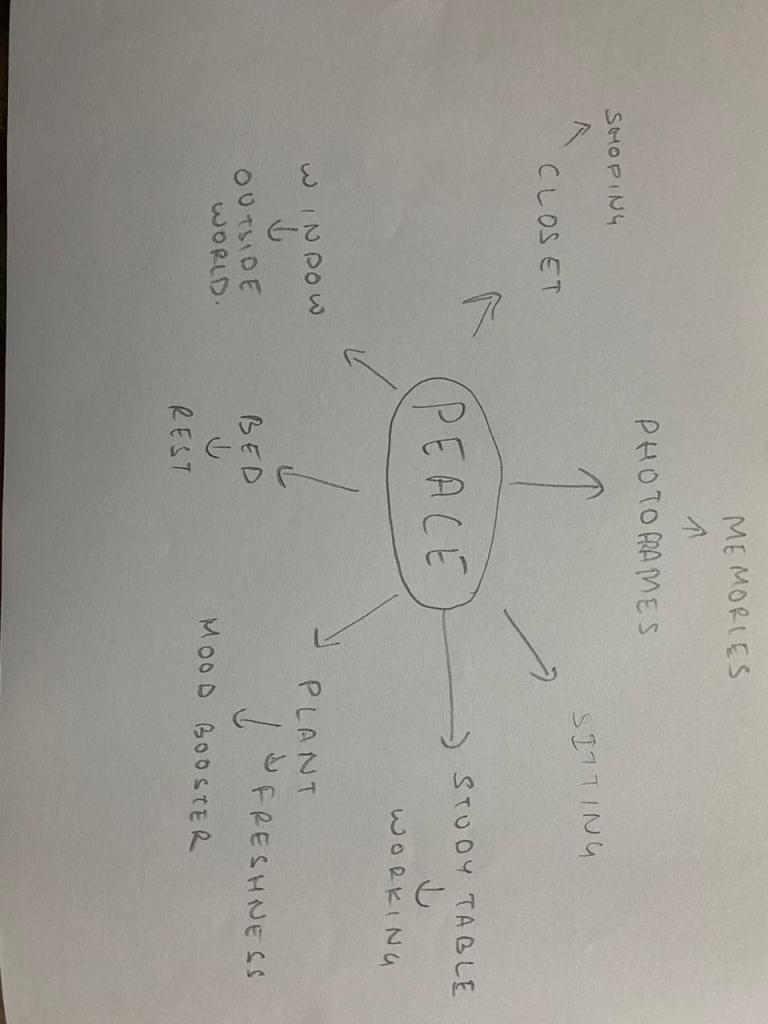 MEMORIES
PHOTOFRAMES
SHOPING
CLOSET
SITTING
PEACE
STUDY TABLE
WORKING
WINDOW
OUTSIDE
WORLD.
BED
REST
PLANT
FRESHNESS
MOOD BOOSTER